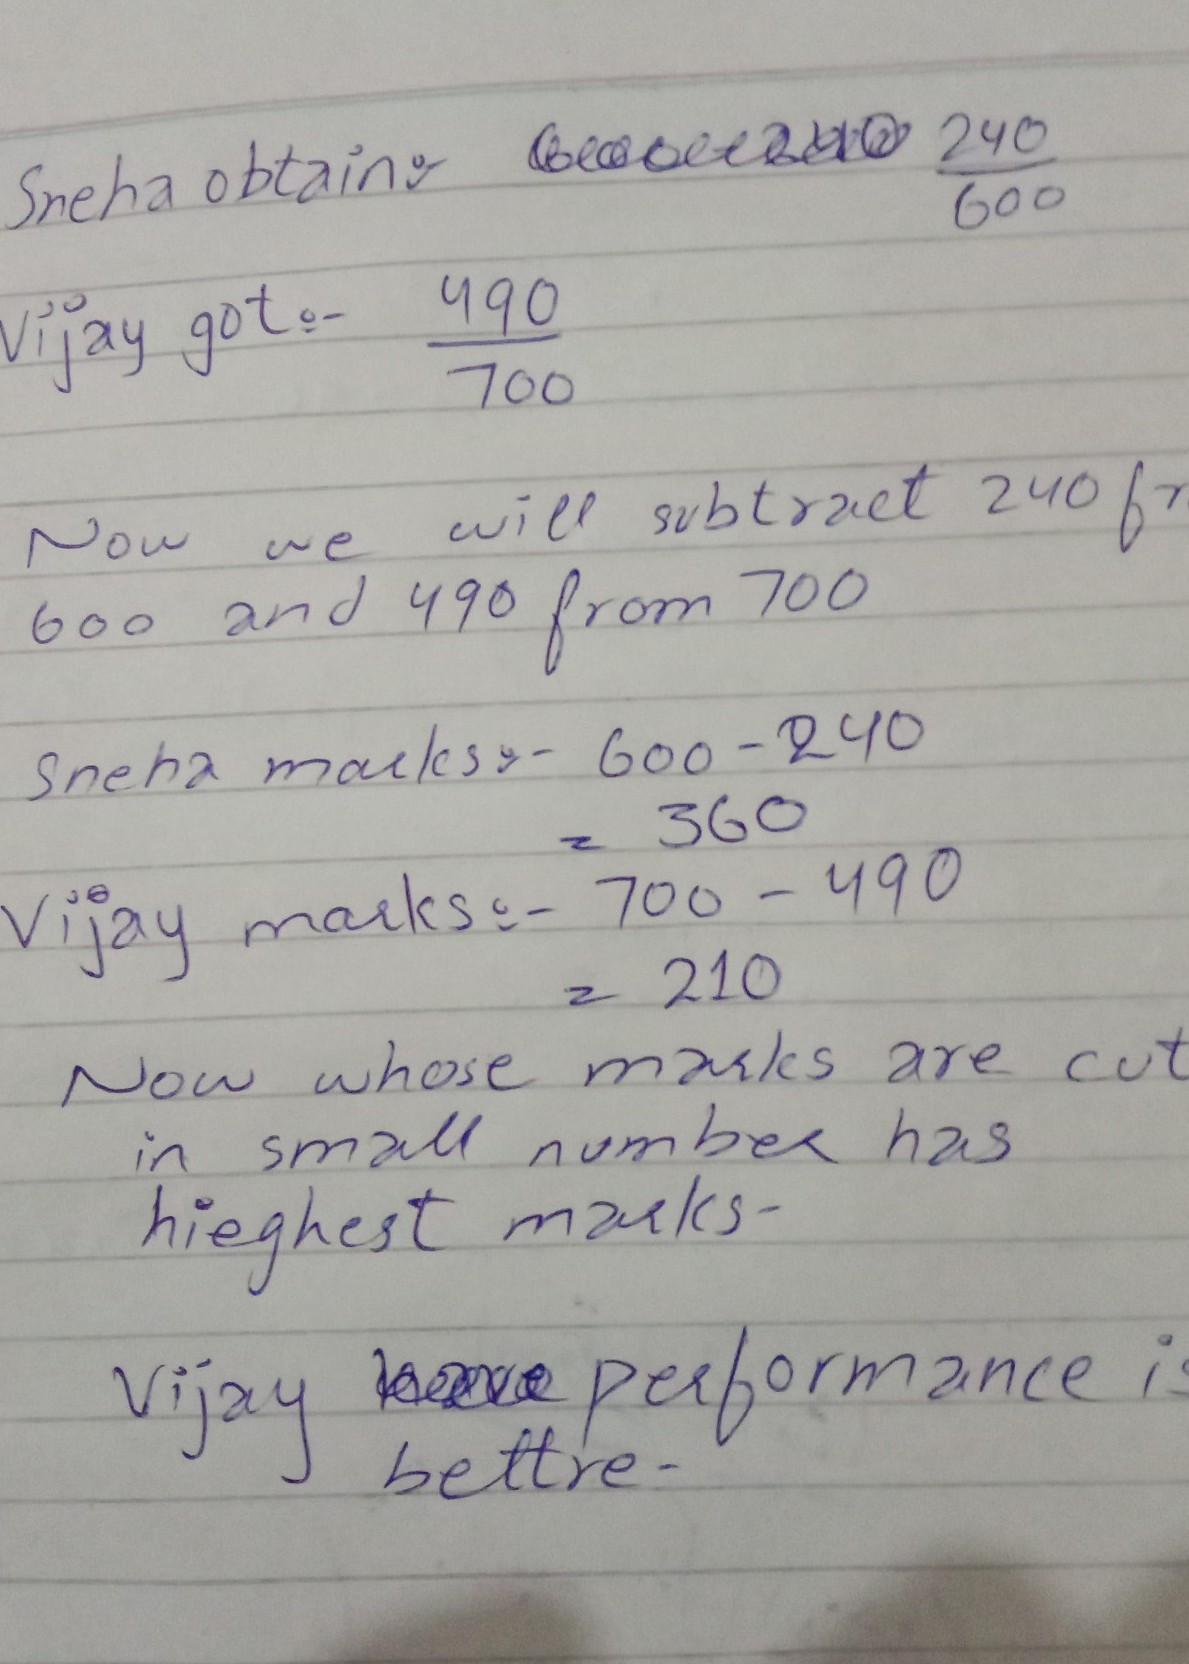 Sneha obtain:- 240/600
Vijay got:- 490/700
Now we will subtract 240 fr
600 and 490 from 700
Sneha marks:- 600 - 240
= 360
Vijay marks:- 700 - 490
= 210
Now whose marks are cut
in small number has
hieghest marks-
Vijay performance is
bettre-